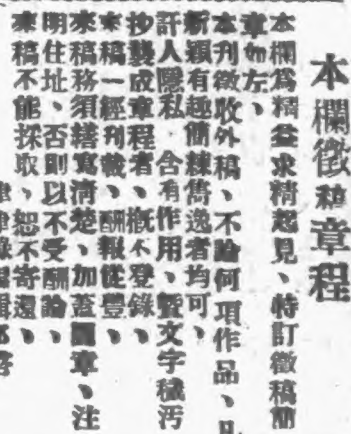 本欄徵稿章程
本欄爲精益求精起見、特訂徵稿簡
章如左、
本刊徵收外稿、不論何項作品、凡
新穎有趣簡練雋逸者均可、
訐人隱私、含有作用、暨文字穢汚
抄襲成章程者、槪不登錄、
本稿一經刊載、酬報從豐、
來稿務須繕寫淸楚、加蓋圖章、注
明住址、否則以不受酬論、
來稿不能採取、恕不寄還、